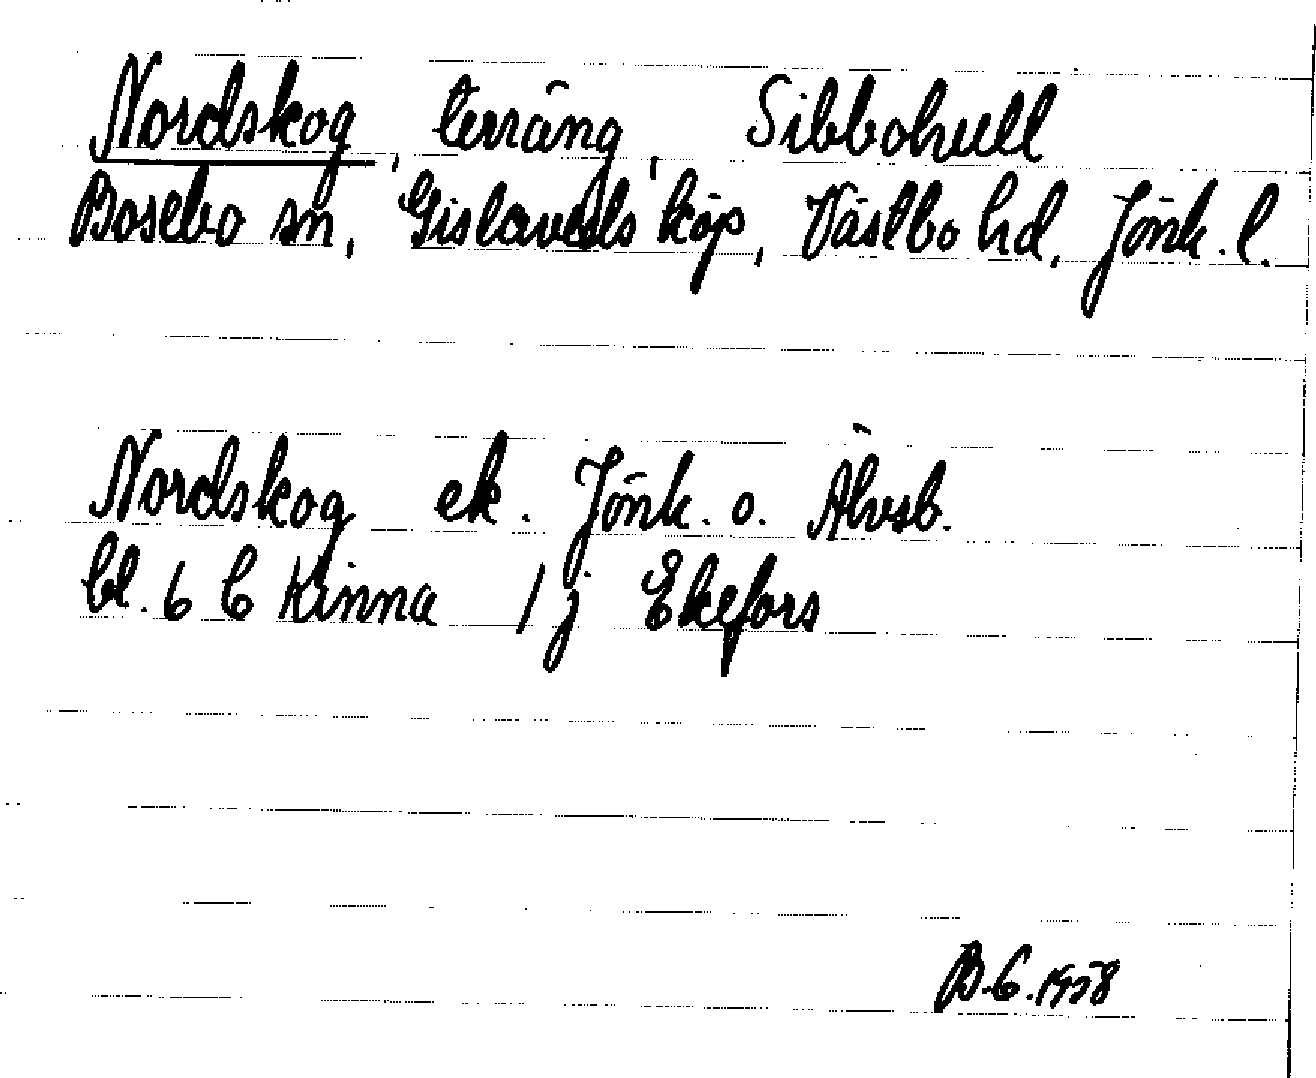 Nordskog, terräng, Sibbohull
Bosebo sn, Gislaveds köp, Västbo hd, Jönk. l.
Nordskog ek. Jönk. o. Älvsb.
bl. 6 C Kinna / j Ekefors
B.G. 1958